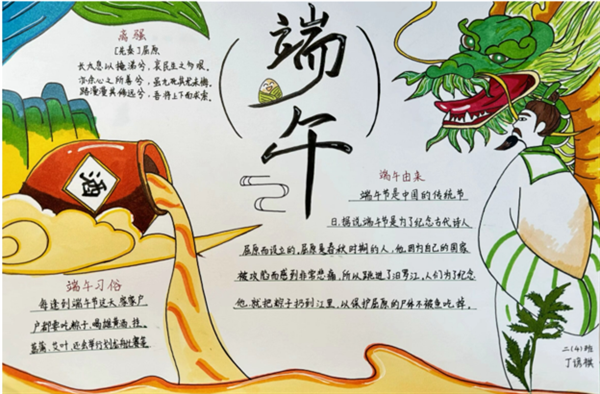 端午
离骚
[先秦]屈原
长太息以掩涕兮，哀民生之多艰。
亦余心之所善兮，虽九死其犹未悔。
路漫漫其修远兮，吾将上下而求索。
酒
端午由来
端午节是中国的传统节
日，据说端午节是为了纪念古代诗人
屈原而设立的，屈原是春秋时期的人，他因为自己的国家
被攻陷而感到非常悲痛，所以跳进了汨罗江，人们为了纪念
他，就把粽子扔到江里，以保护屈原的尸体不被鱼吃掉。
端午习俗
每逢到端午节这天，家家户
户都要吃粽子、喝雄黄酒、挂
菖蒲、艾叶，还会举行划龙舟比赛
二(4)班
丁